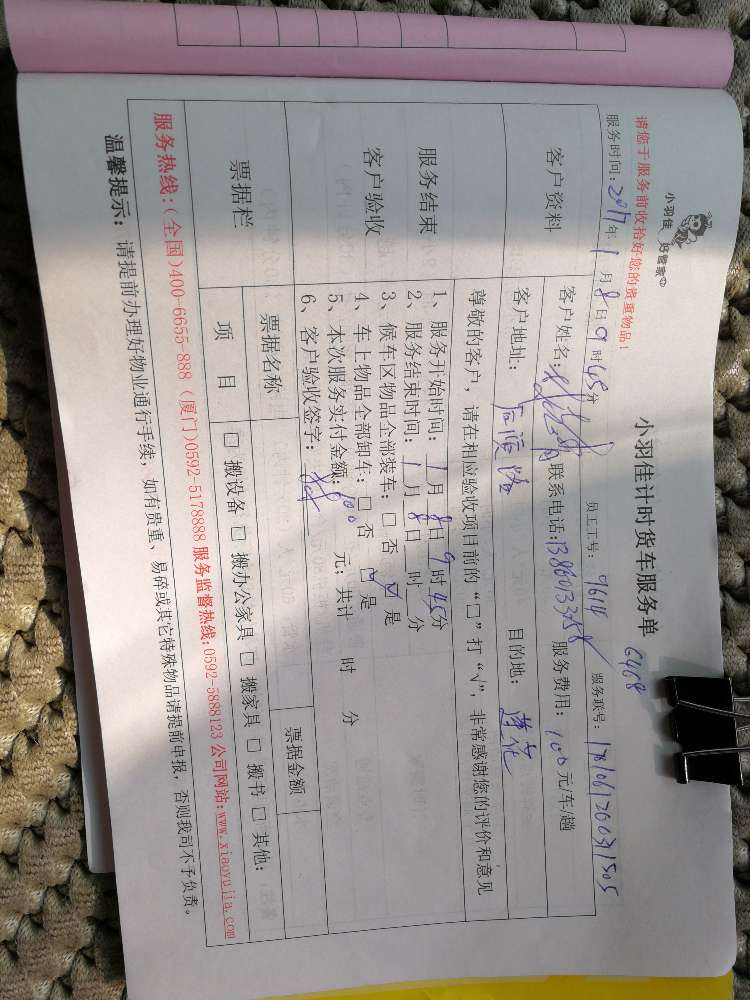 小羽佳 好管家
请您于服务前收拾好您的贵重物品！
小羽佳计时货车服务单
6468
服务时间：2017年1月8日9时45分 员工工号：9614 服务联号：
客户资料
客户姓名： 联系电话： 服务费用：100元/车/趟
客户地址： 目的地：莲花
服务结束
客户验收
尊敬的客户，请在相应验收项目前的“□”打“√”，非常感谢您的评价和意见
1、服务开始时间：1月8日9时45分
2、服务结束时间：1月8日 时 分
3、候车区物品全部装车：□否 ☑是
4、车上物品全部卸车：□否 ☑是
5、本次服务实付金额：100元；共计 时 分
6、客户验收签字：
票据栏
票据名称 票据金额
项 目 □搬设备 □搬办公家具 □搬家具 □搬书 □其他：
服务热线：(全国)400-6655-888 (厦门)0592-5178888 服务监督热线:0592-5888123 公司网站:www.xiaoyujia.com
温馨提示：请提前办理好物业通行手续，如有贵重、易碎或其它特殊物品请提前申报，否则我司不予负责。